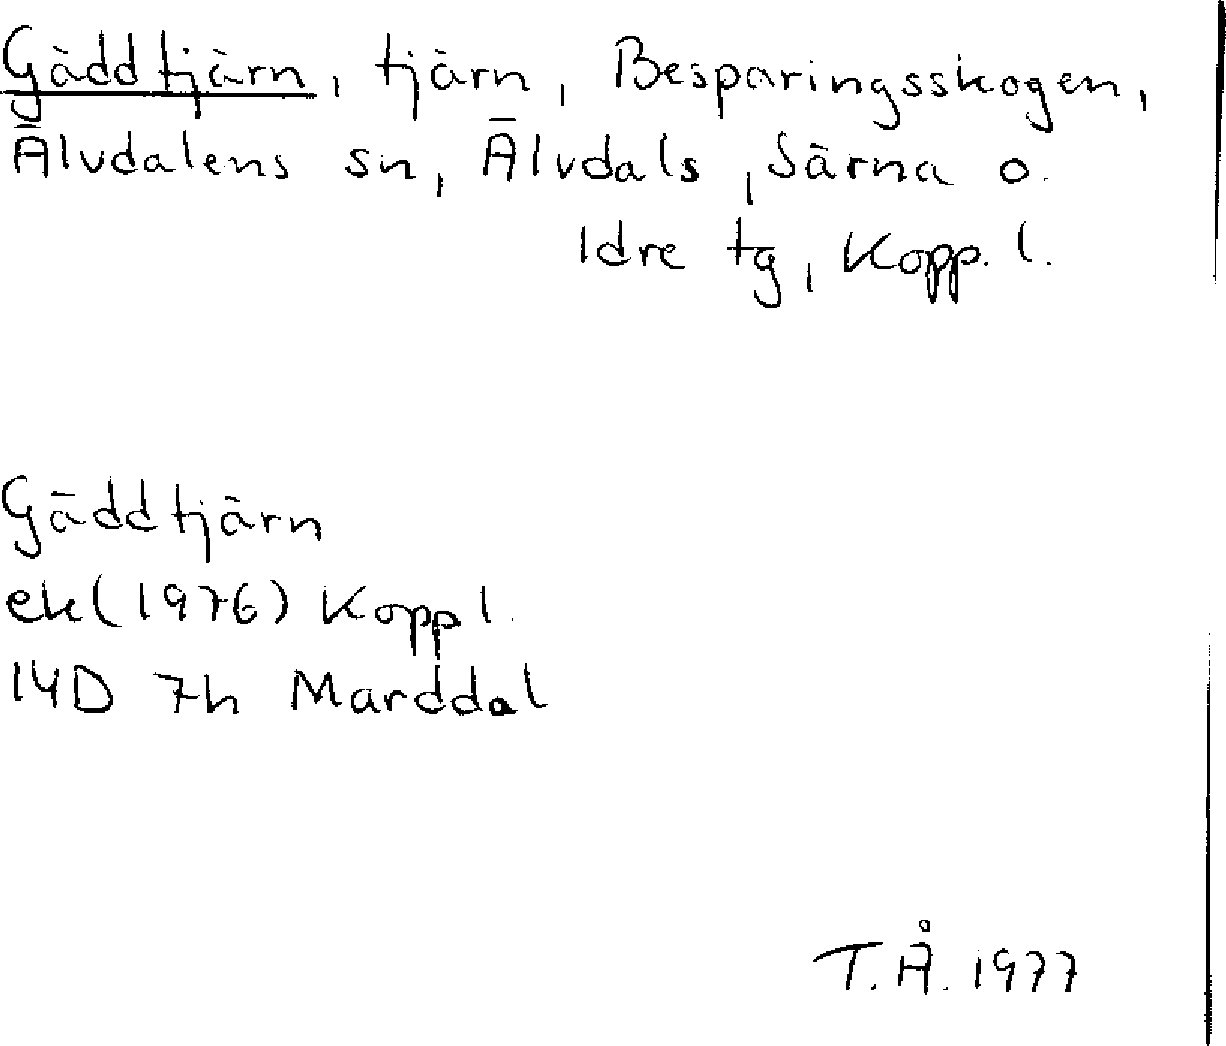 Gäddtjärn, tjärn, Besparingsskogen,
Älvdalens sn, Älvdals, Särna o.
Idre tg, Kopp. l.
Gäddtjärn
ek(1976) Kopp l.
14D 7h Marddal
T.Å. 1977